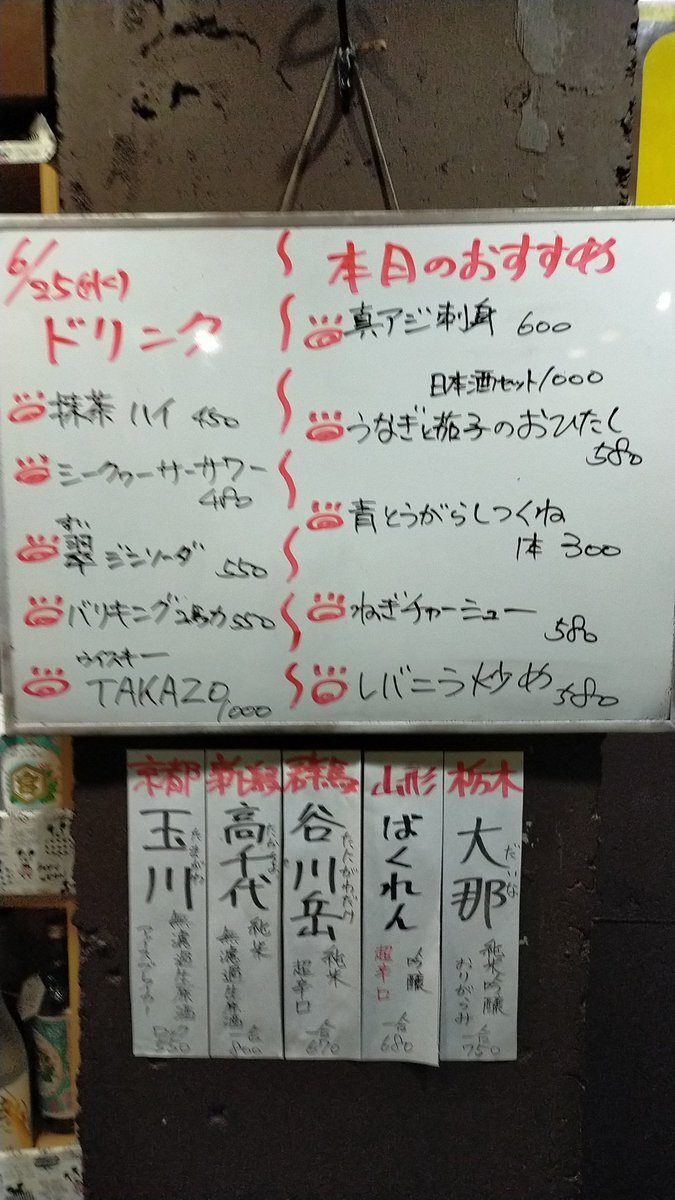 6/25(水)
ドリンク
抹茶ハイ 450
シークヮーサーサワー
480
すい
翠ジンソーダ 550
バリキング2馬力 550
ウイスキー
TAKAZO 1,000
本日のおすすめ
真アジ刺身 600
日本酒セット1000
うなぎと茄子のおひたし
580
青とうがらしつくね
1本 300
ねぎチャーシュー
580
レバニラ炒め 580
栃木
大那
だいな
純米吟醸
おりがらみ
一合
750
山形
ばくれん
吟醸
超辛口
一合
680
群馬
谷川岳
たにがわだけ
純米
超辛口
一合
670
新潟
高千代
たかちよ
純米
無濾過生原酒
一合
800
京都
玉川
たまがわ
無濾過生原酒
550